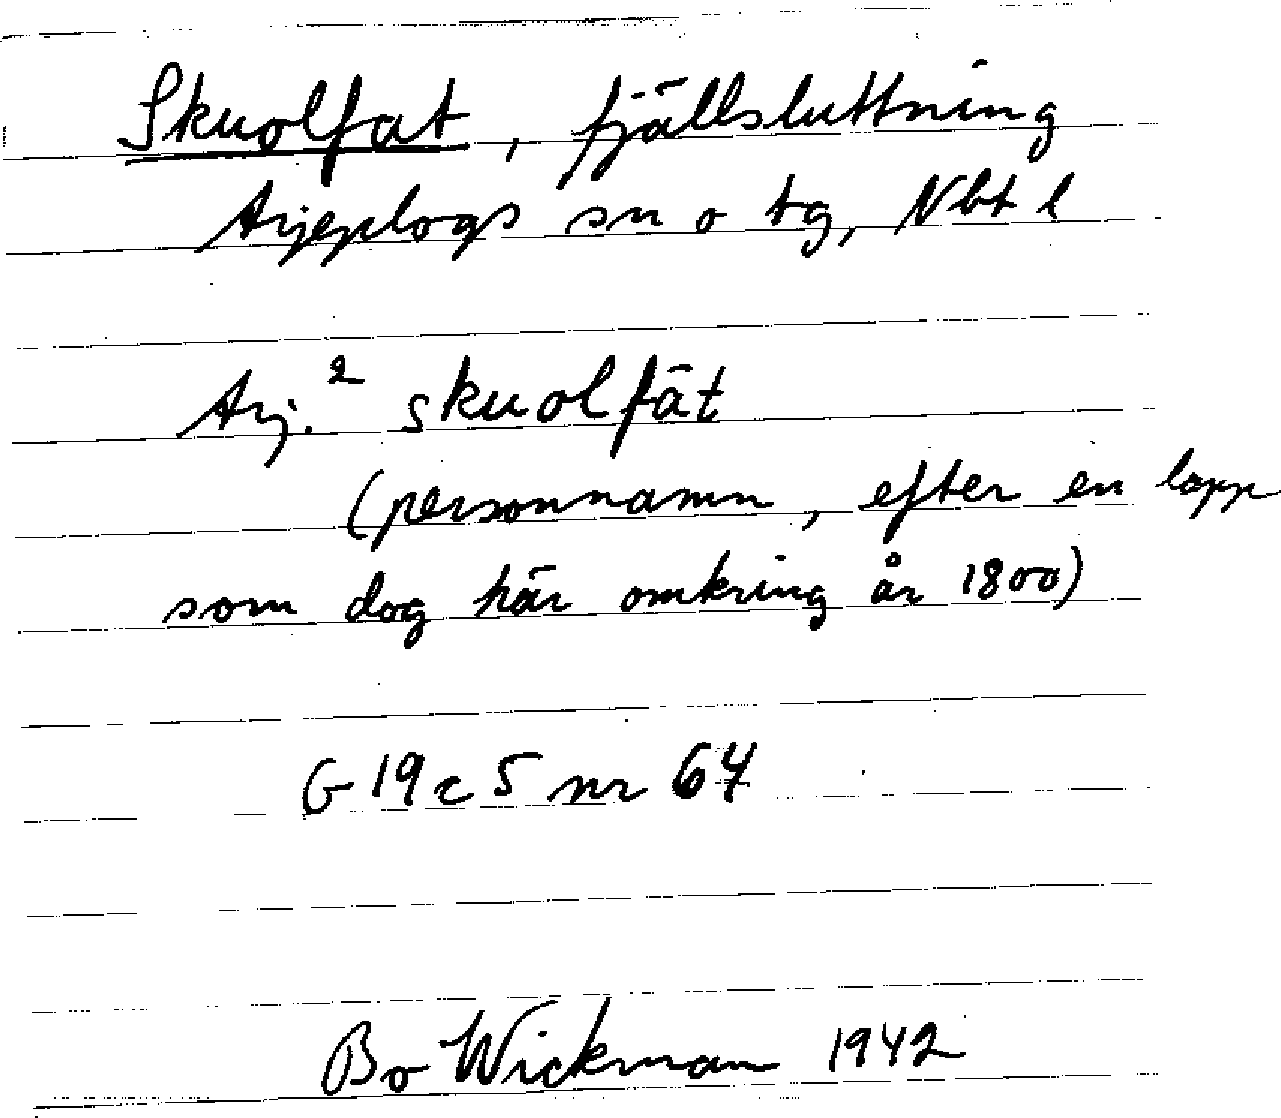 Skuolfat, fjällsluttning
Arjeplogs sn o tg, Nbt l
Arj.² skuolfāt
(personnamn, efter en lapp
som dog här omkring år 1800)
G 19 c 5 nr 64
Bo Wickman 1942